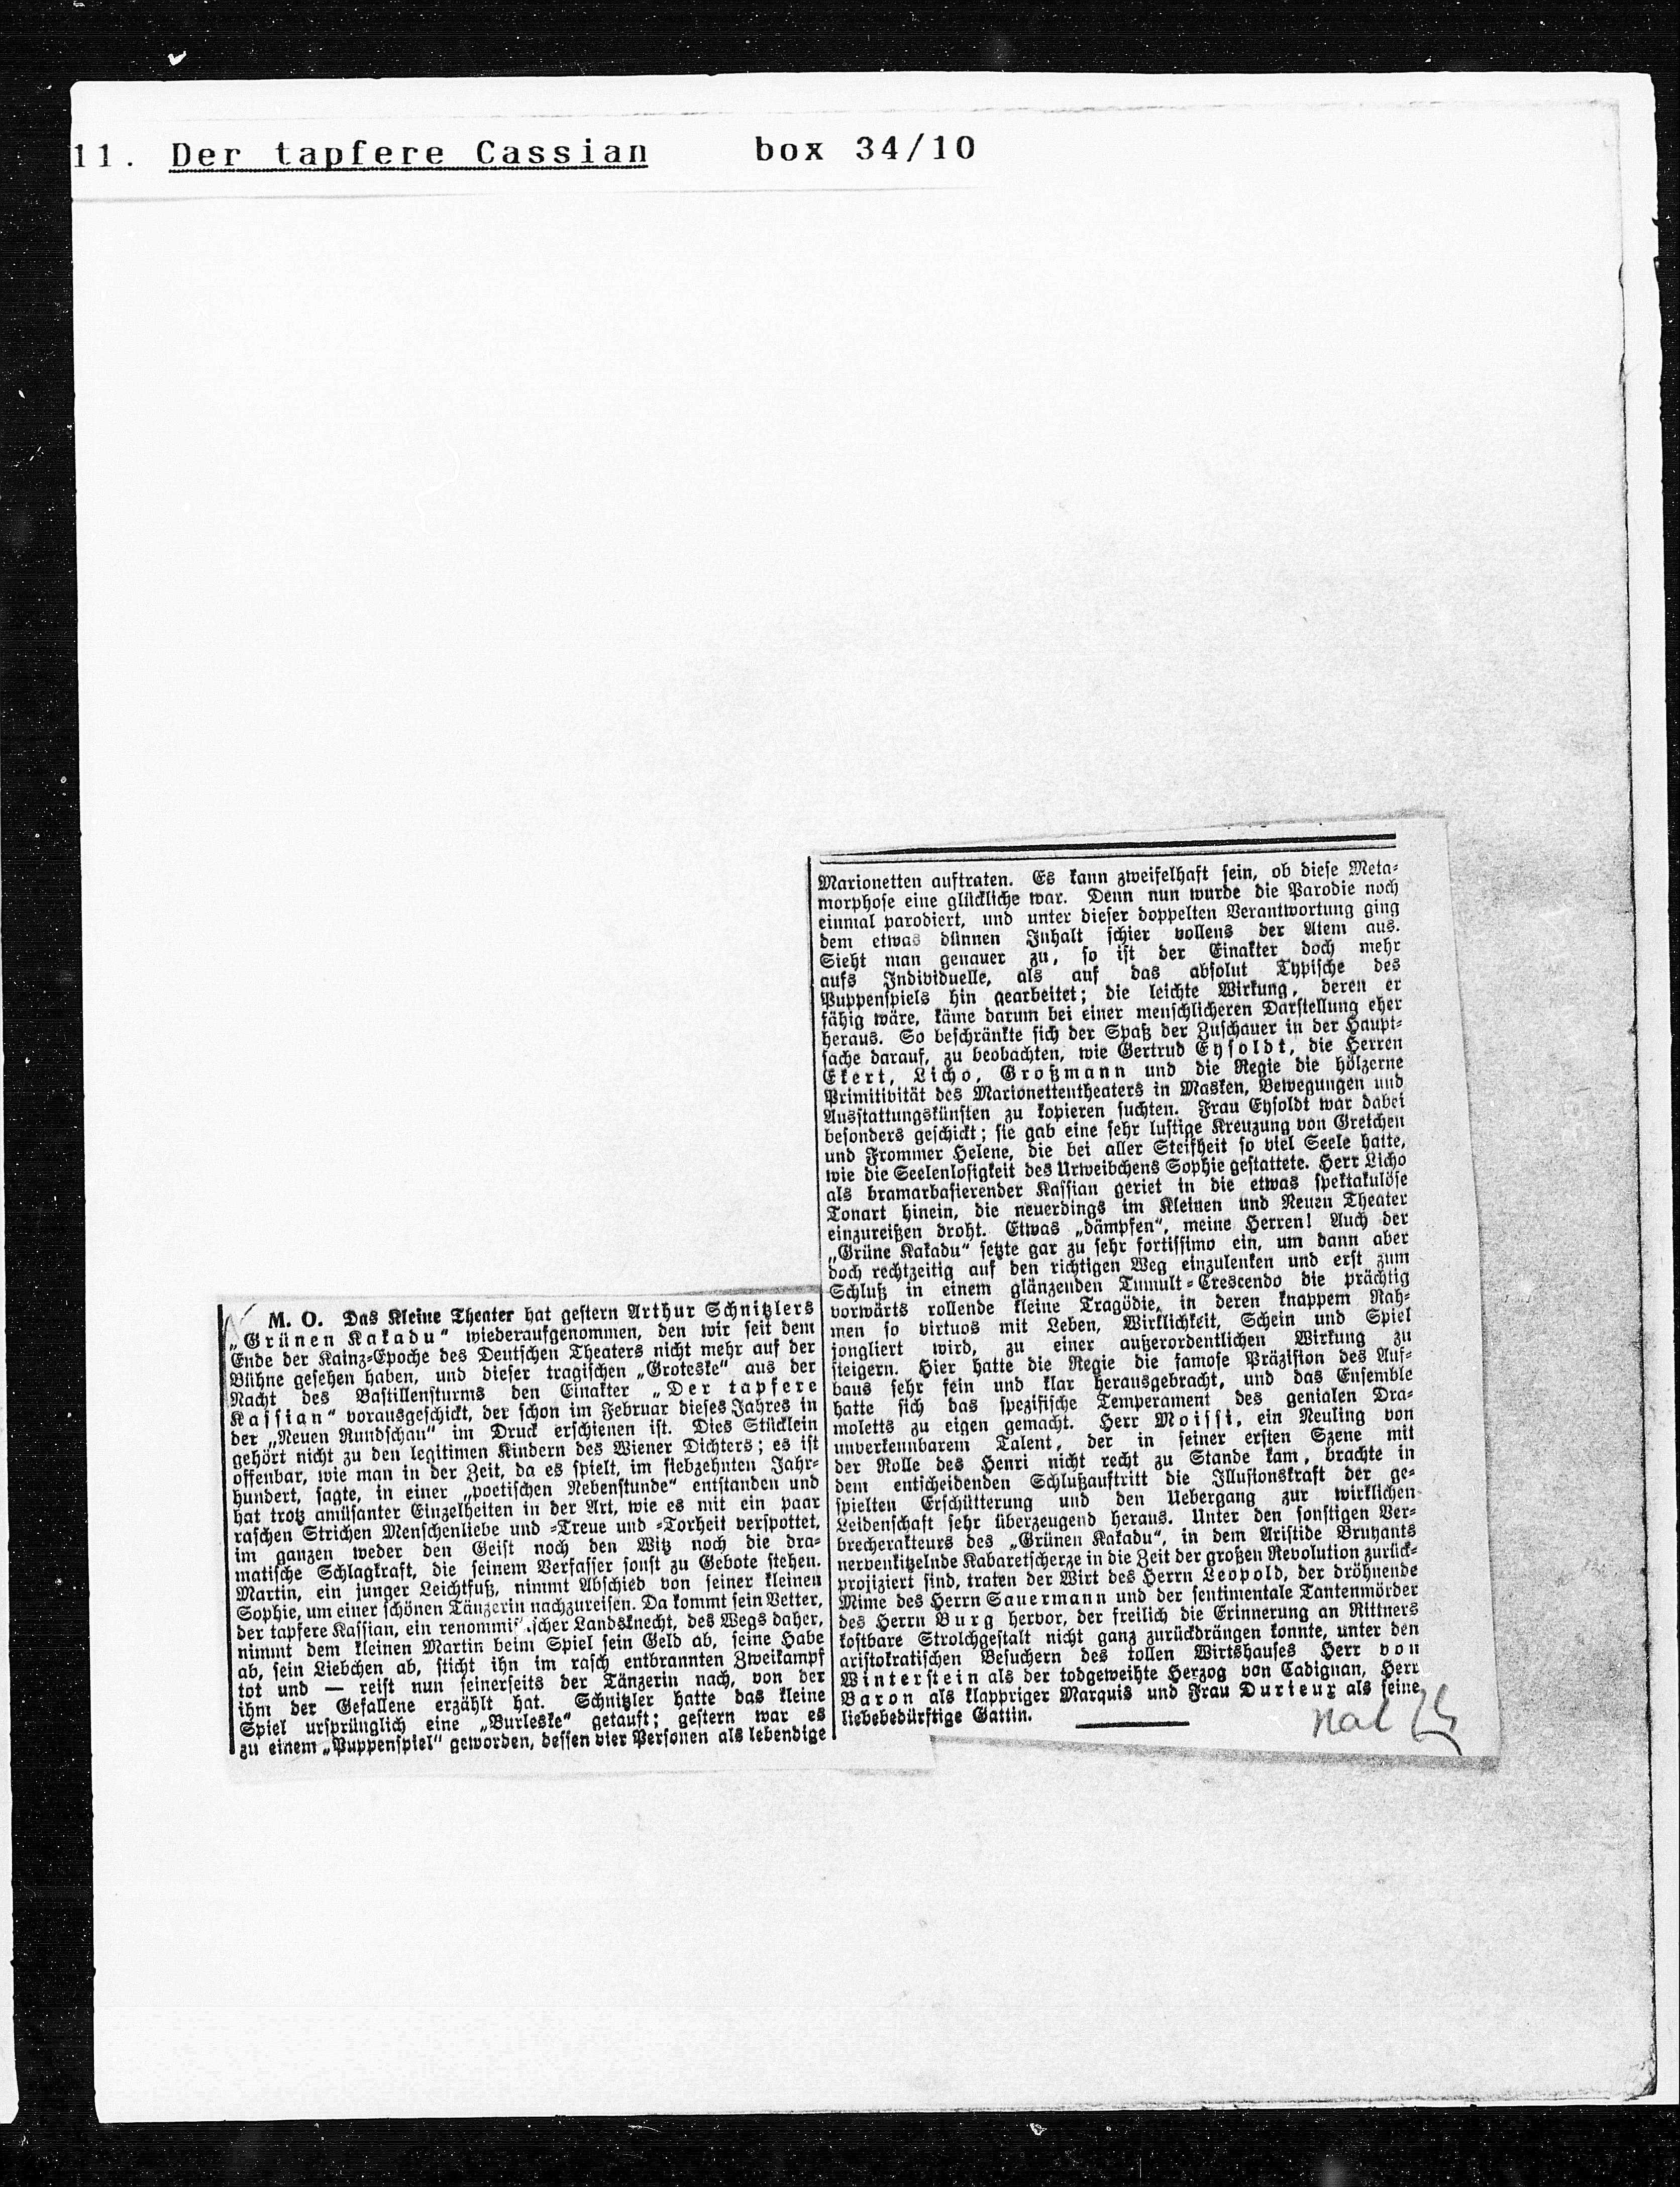 11. Der tapfere Cassian box 34/10
M. O. Das Kleine Theater hat gestern Arthur Schnitzlers
„Grünen Kakadu“ wiederaufgenommen, den wir seit dem
Ende der Kainz-Epoche des Deutschen Theaters nicht mehr auf der
Bühne gesehen haben, und dieser tragischen „Groteske“ aus der
Nacht des Bastillensturms den Einakter „Der tapfere
Kassian“ vorausgeschickt, der schon im Februar dieses Jahres in
der „Neuen Rundschau“ im Druck erschienen ist. Dies Stücklein
gehört nicht zu den legitimen Kindern des Wiener Dichters; es ist
offenbar, wie man in der Zeit, da es spielt, im siebzehnten Jahr-
hundert, sagte, in einer „poetischen Nebenstunde“ entstanden und
hat trotz amüsanter Einzelheiten in der Art, wie es mit ein paar
raschen Strichen Menschenliebe und -Treue und -Torheit verspottet,
im ganzen weder den Geist noch den Witz noch die dra-
matische Schlagkraft, die seinem Verfasser sonst zu Gebote stehen.
Martin, ein junger Leichtfuß, nimmt Abschied von seiner kleinen
Sophie, um einer schönen Tänzerin nachzureisen. Da kommt sein Vetter,
der tapfere Kassian, ein renommi scher Landsknecht, des Wegs daher,
nimmt dem kleinen Martin beim Spiel sein Geld ab, seine Habe
ab, sein Liebchen ab, sticht ihn im rasch entbrannten Zweikampf
tot und — reist nun seinerseits der Tänzerin nach, von der
ihm der Gefallene erzählt hat. Schnitzler hatte das kleine
Spiel ursprünglich eine „Burleske“ getauft; gestern war es
zu einem „Puppenspiel“ geworden, dessen vier Personen als lebendige
Marionetten auftraten. Es kann zweifelhaft sein, ob diese Meta-
morphose eine glückliche war. Denn nun wurde die Parodie noch
einmal parodiert, und unter dieser doppelten Verantwortung ging
dem etwas dünnen Inhalt schier vollens der Atem aus.
Sieht man genauer zu, so ist der Einakter doch mehr
aufs Individuelle, als auf das absolut Typische des
Puppenspiels hin gearbeitet; die leichte Wirkung, deren er
fähig wäre, käme darum bei einer menschlicheren Darstellung eher
heraus. So beschränkte sich der Spaß der Zuschauer in der Haupt-
sache darauf, zu beobachten, wie Gertrud Eysoldt, die Herren
Ekert, Licho, Großmann und die Regie die hölzerne
Primitivität des Marionettentheaters in Masken, Bewegungen und
Ausstattungskünsten zu kopieren suchten. Frau Eysoldt war dabei
besonders geschickt; sie gab eine sehr lustige Kreuzung von Gretchen
und Frommer Helene, die bei aller Steifheit so viel Seele hatte,
wie die Seelenlosigkeit des Urweibchens Sophie gestattete. Herr Licho
als bramarbasierender Kassian geriet in die etwas spektakulöse
Tonart hinein, die neuerdings im Kleinen und Neuen Theater
einzureißen droht. Etwas „dämpfen“, meine Herren! Auch der
„Grüne Kakadu“ setzte gar zu sehr fortissimo ein, um dann aber
doch rechtzeitig auf den richtigen Weg einzulenken und erst zum
Schluß in einem glänzenden Tumult-Crescendo die prächtig
vorwärts rollende kleine Tragödie, in deren knappem Rah-
men so virtuos mit Leben, Wirklichkeit, Schein und Spiel
jongliert wird, zu einer außerordentlichen Wirkung zu
steigern. Hier hatte die Regie die famose Präzision des Auf-
baus sehr fein und klar herausgebracht, und das Ensemble
hatte sich das spezifische Temperament des genialen Dra-
moletts zu eigen gemacht. Herr Moissi, ein Neuling von
unverkennbarem Talent, der in seiner ersten Szene mit
der Rolle des Henri nicht recht zu Stande kam, brachte in
dem entscheidenden Schlußauftritt die Illusionskraft der ge-
spielten Erschütterung und den Uebergang zur wirklichen
Leidenschaft sehr überzeugend heraus. Unter den sonstigen Ver-
brecherakteurs des „Grünen Kakadu“, in dem Aristide Bruyants
nervenkitzelnde Kabaretscherze in die Zeit der großen Revolution zurück-
projiziert sind, traten der Wirt des Herrn Leopold, der dröhnende
Mime des Herrn Sauermann und der sentimentale Tantenmörder
des Herrn Burg hervor, der freilich die Erinnerung an Rittners
kostbare Strolchgestalt nicht ganz zurückdrängen konnte, unter den
aristokratischen Besuchern des tollen Wirtshauses Herr von
Winterstein als der todgeweihte Herzog von Cadignan, Herr
Baron als klappriger Marquis und Frau Durieux als seine
liebebedürftige Gattin.